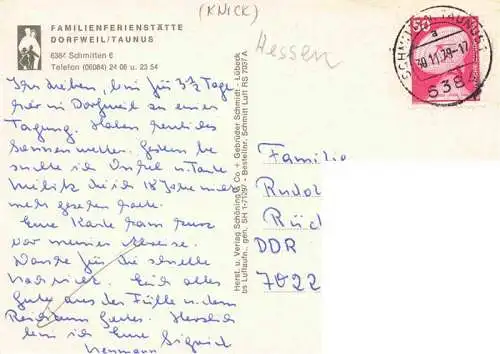 (KNICK)
Hessen
FAMILIENFERIENSTÄTTE
DORFWEIL/TAUNUS
6384 Schmitten 6
Telefon (06084) 24 06 u. 23 54
SCHMITTEN, TAUNUS 1
a
30.11.79-17
638
Ihr Lieben, bin für 3½ Tage
hier in Dorfweil zu einer
Tagung. Haben herrliches
Sonnenwetter. Gestern be
suchte ich Onkel u. Tante
die ich 18 Jahre nicht
mehr gesehen hatte.
Eure Karte kam kurz
vor meiner Abreise.
Danke für die schnelle
Nachricht. Euch alles
Gute aus der Fülle u. dem
Reichtum Gottes. Herzlich
bin ich Eure Sigrid
Hermann
Herst. u. Verlag Schöning & Co + Gebrüder Schmidt - Lübeck
bs Luftaufn., gen. SH 1-71/297 - Bestellnr. Schmitt Luft RS 7037 A
Familie
Rudol
Rüd
DDR
7022